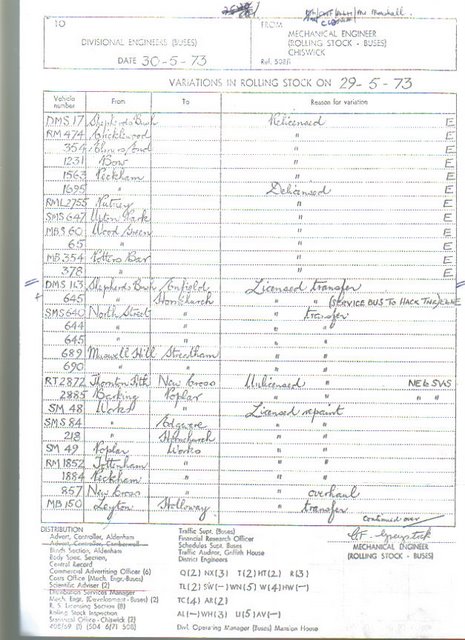 TO
FROM
DIVISIONAL ENGINEERS (BUSES)
MECHANICAL ENGINEER
(ROLLING STOCK - BUSES)
CHISWICK
DATE 30-5-73
VARIATIONS IN ROLLING STOCK ON 29-5-73
Vehicle number From To Reason for variation
DMS 17 Shepherds Bush Relicensed E
RM 474 Cricklewood " E
354 " E
1231 Bow " E
1563 Peckham " E
1695 " Delicensed E
RML2755 Putney " E
SMS 647 Upton Park " E
MBS 60 Wood Green " E
65 " " E
MB 354 Potters Bar " E
378 " " E
DMS 113 Shepherds Bush Enfield Licensed transfer
645 " Hornchurch " " (SERVICE BUS TO
SMS 640 North Street " " transfer
644 " " " "
645 " " " "
689 Muswell Hill Streatham " "
690 " " " "
RT 2872 Thornton Hth New Cross Unlicensed " NEb SVS
2885 Barking Poplar " " " "
SM 48 Works " Licensed repaint
SMS 84 " Edgware " "
218 " Hornchurch " "
SM 49 Poplar Works " "
RM 1852 Tottenham " " "
1884 Peckham " " "
857 New Cross " " overhaul
MB 150 Leyton Holloway " transfer
continued over
MECHANICAL ENGINEER
(ROLLING STOCK - BUSES)
DISTRIBUTION
Advert. Controller, Aldenham
Advert. Controller, Camberwell
Body Spec. Section,
Central Record
Commercial Advertising Officer (6)
Costs Office (Mech. Engr-Buses)
Scientific Adviser (2)
Distribution Services Manager
Mech. Engr. (Development - Buses) (2)
R. S. Licensing Section (8)
Rolling Stock Inspection
Statistical Office - Chiswick (2)
Traffic Supt. (Buses)
Financial Research Officer
Schedules Supt. Buses
Traffic Auditor, Griffith House
District Engineers
Q(2) NX(3) T(2) HT(2) R(3)
TL(2) SW(-) WN(5) W(4) HW(-)
TC(4) AL(2)
AL(-) WH(3) U(5) AV(-)
Divl. Operating Manager (Buses) Mansion House